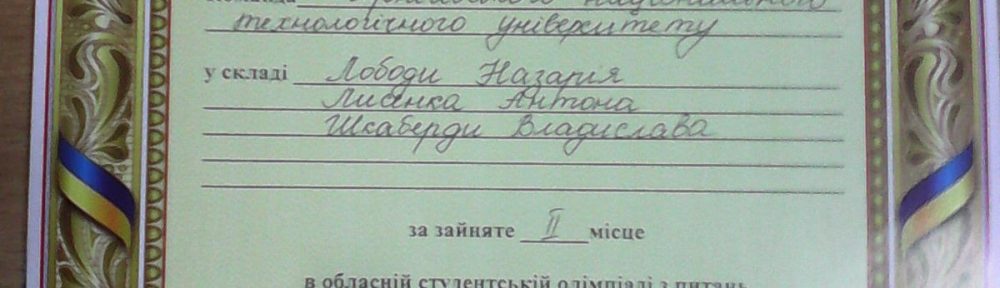 національного
технологічного університету
у складі Лободи Назарія
Лисенка Антона
Шкаберди Владислава
за зайняте II місце
в обласній студентській олімпіаді з питань